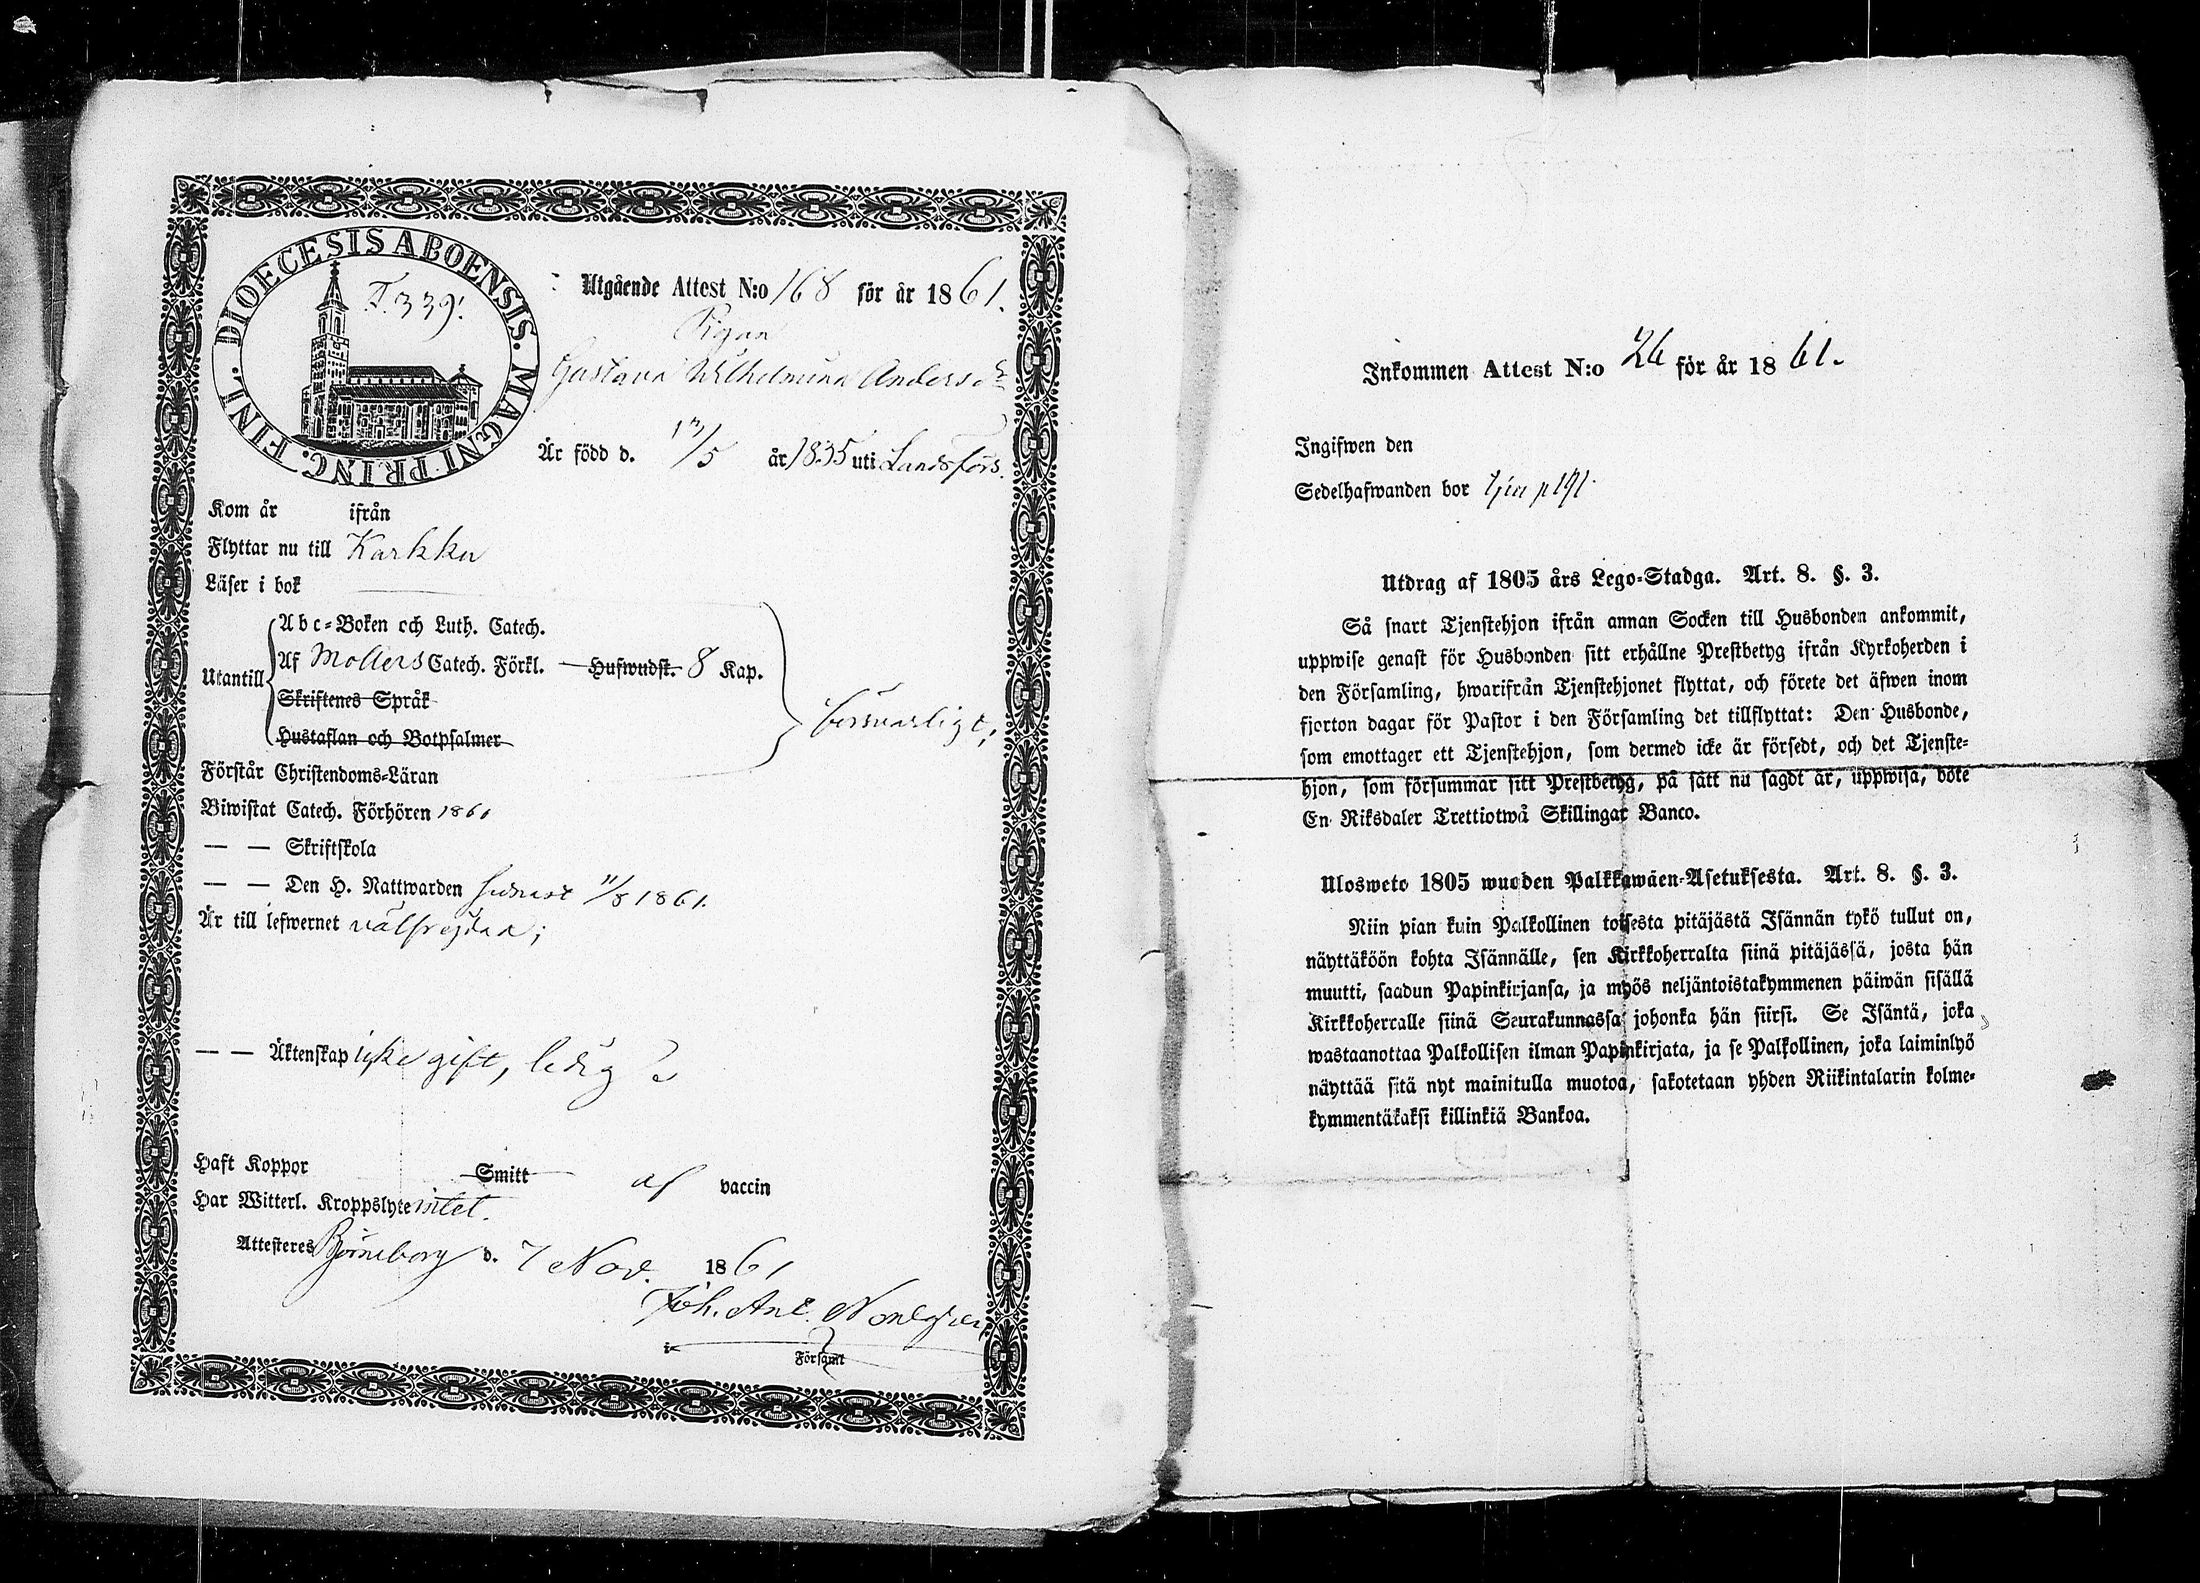 DIOECESIS ABOENSIS. MAGNI PRINC. FINL.
F. 339.
Utgående Attest N:o 168 för år 1861.
Pigan
Gustava Wilhelmina Anders
Är född d. 13/5 år 1835 uti Landsförs.
Kom år ifrån
Flyttar nu till Karkku
Läser i bok
Utantill
Abc-Boken och Luth. Catech.
Af Möllers Catech. Förkl. Hufwudst. 8 Kap.
Skriftenes Språk
Hustaflan och Botpsalmer
försvarligt;
Förstår Christendoms-Läran
Biwistat Catech. Förhören 1861
— — Skriftskola
— — Den H. Nattwarden senast 11/8 1861.
Är till lefwernet välfrejdad;
— — Äktenskap icke gift, ledig
Haft Koppor Smitt af vaccin
Har Witterl. Kroppslyte intet.
Attesteres Björneborg d. 7 Nov. 1861
Joh. Ant. Nordgren
i Församl
Inkommen Attest N:o 26 för år 1861.
Ingifwen den
Sedelhafwanden bor
Utdrag af 1805 års Lego-Stadga. Art. 8. §. 3.
Så snart Tjenstehjon ifrån annan Socken till Husbonden ankommit,
uppwise genast för Husbonden sitt erhållne Prestbetyg ifrån Kyrkoherden i
den Församling, hwarifrån Tjenstehjonet flyttat, och förete det äfwen inom
fjorton dagar för Pastor i den Församling det tillflyttat: Den Husbonde,
som emottager ett Tjenstehjon, som dermed icke är försedt, och det Tjenste-
hjon, som försummar sitt Prestbetyg, på sätt nu sagdt är, uppwisa, böte
En Riksdaler Trettiotwå Skillingar Banco.
Ulosweto 1805 wuoden Palkkawäen-Asetuksesta. Art. 8. §. 3.
Niin pian kuin Palkollinen toisesta pitäjästä Isännän tykö tullut on,
näyttäköön kohta Isännälle, sen Kirkkoherralta siinä pitäjässä, josta hän
muutti, saadun Papinkirjansa, ja myös neljäntoistakymmenen päiwän sisällä
Kirkkoherralle siinä Seurakunnassa johonka hän siirsi. Se Isäntä, joka
wastaanottaa Palkollisen ilman Papinkirjata, ja se Palkollinen, joka laiminlyö
näyttää sitä nyt mainitulla muotoa, sakotetaan yhden Riikintalarin kolme-
kymmentäkaksi killinkiä Bankoa.